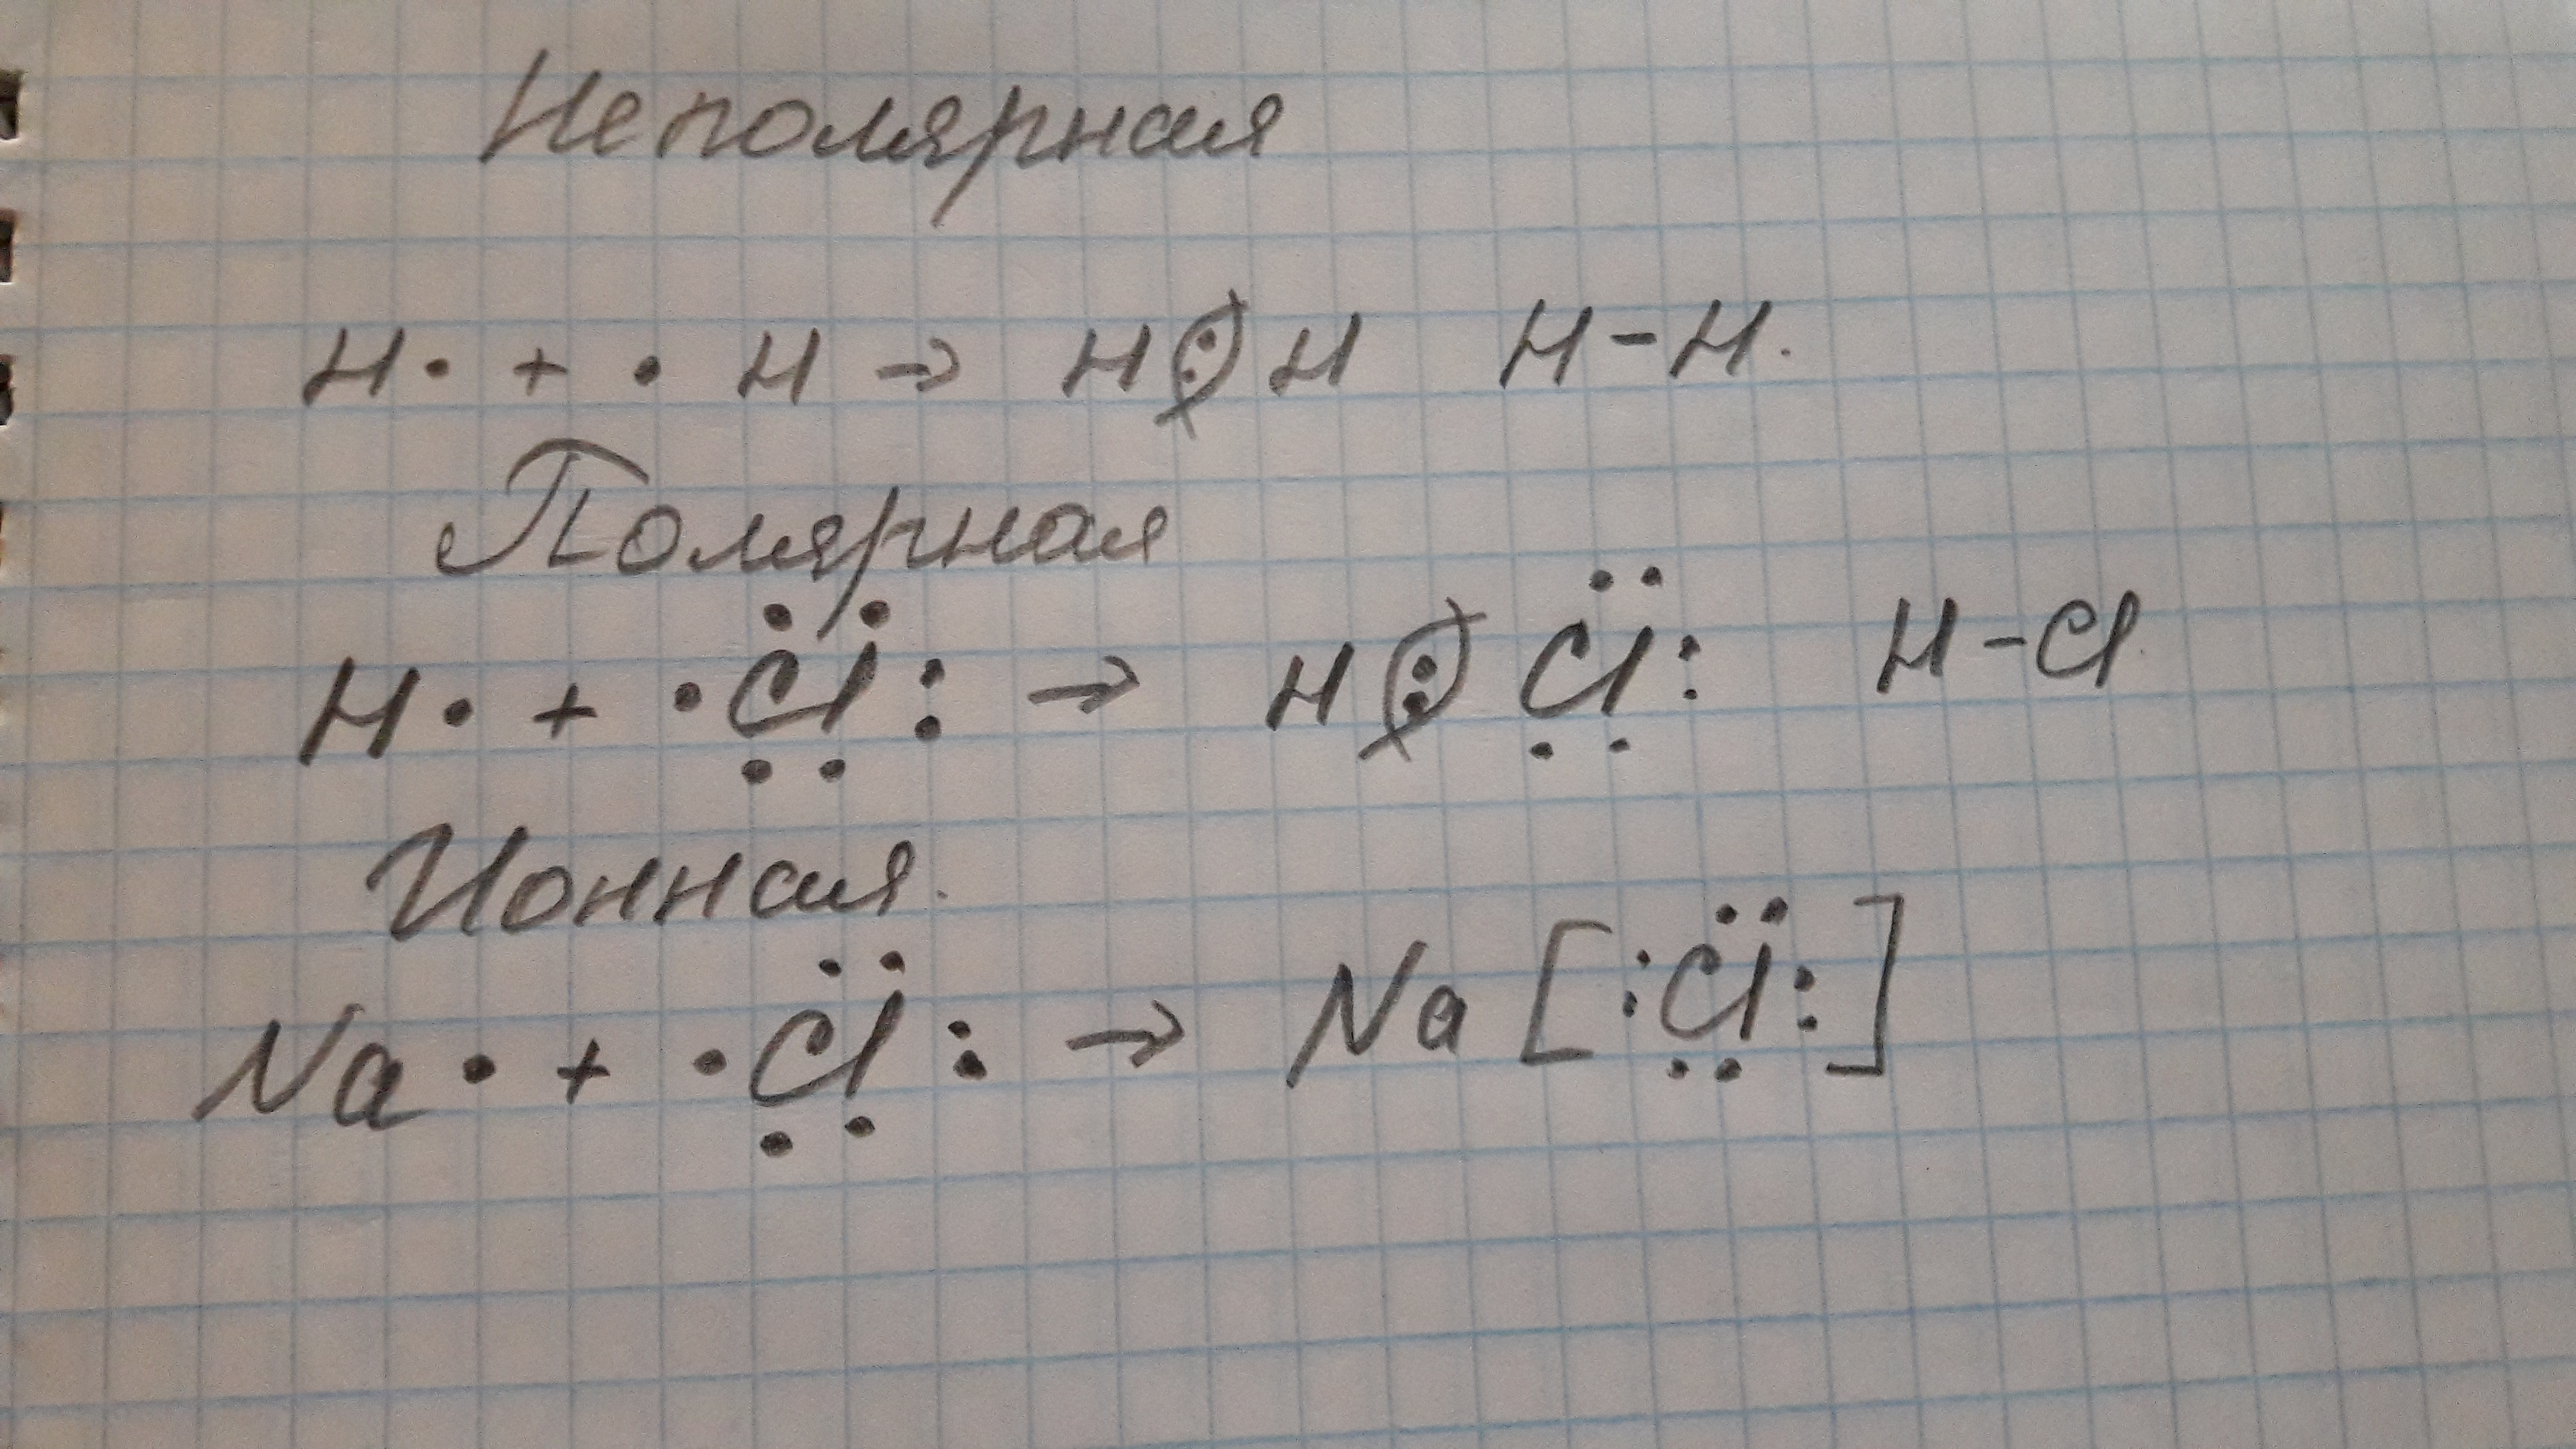 Неполярная
H· + ·H → H:H H-H.
Полярная
H· + ·C̈l̤: → H:C̈l̤: H-Cl
Ионная.
Na· + ·C̈l̤: → Na [:C̈l̤:]